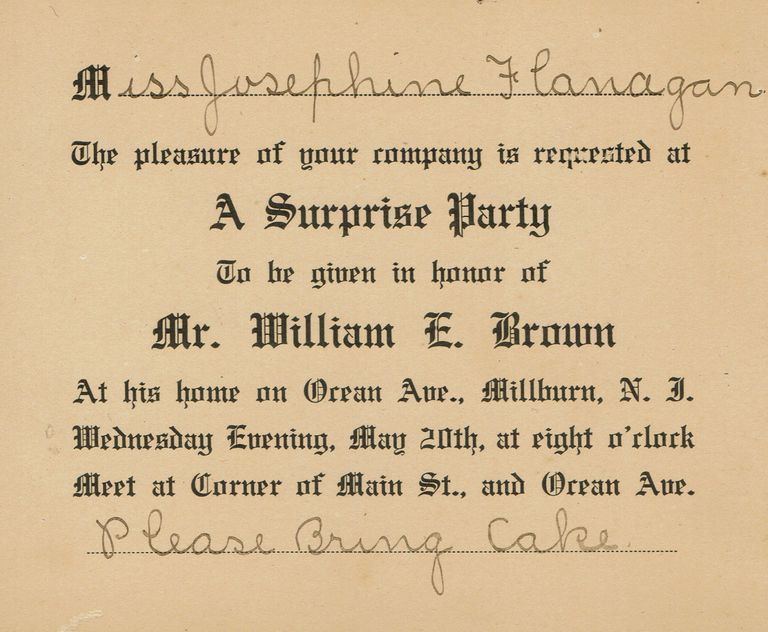 Miss Josephine Flanagan
The pleasure of your company is requested at
A Surprise Party
To be given in honor of
Mr. William E. Brown
At his home on Ocean Ave., Millburn, N. J.
Wednesday Evening, May 20th, at eight o'clock
Meet at Corner of Main St., and Ocean Ave.
Please Bring Cake